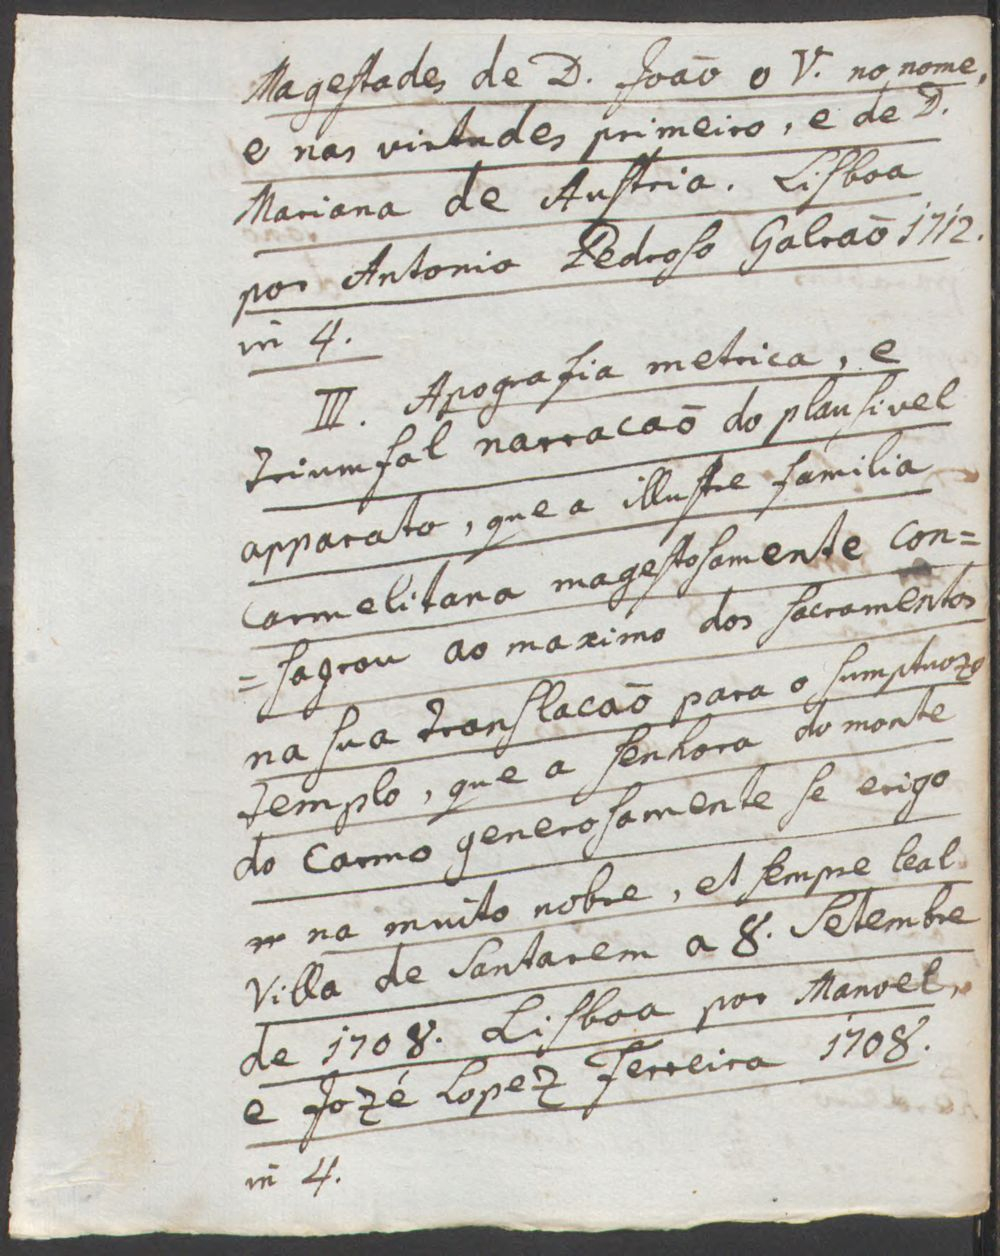 Magestades de D. Joaõ o V. no nome,
e nas virtudes primeiro, e de D.
Mariana de Austria. Lisboa
por Antonio Pedroso Galraõ 1712.
in 4.
III. Apografia metrica, e
triumfal narracaõ do plausivel
apparato, que a illustre familia
Carmelitana magestosamente con=
=sagrou ao maximo dos sacramentos
na sua translacaõ para o sumptuozo
templo, que a senhora do monte
do Carmo generosamente se erigo
na muito nobre, et sempre leal
Villa de Santarem a 8. Setembre
de 1708. Lisboa por Manoel,
e Jozé Lopez Ferreira 1708.
in 4.